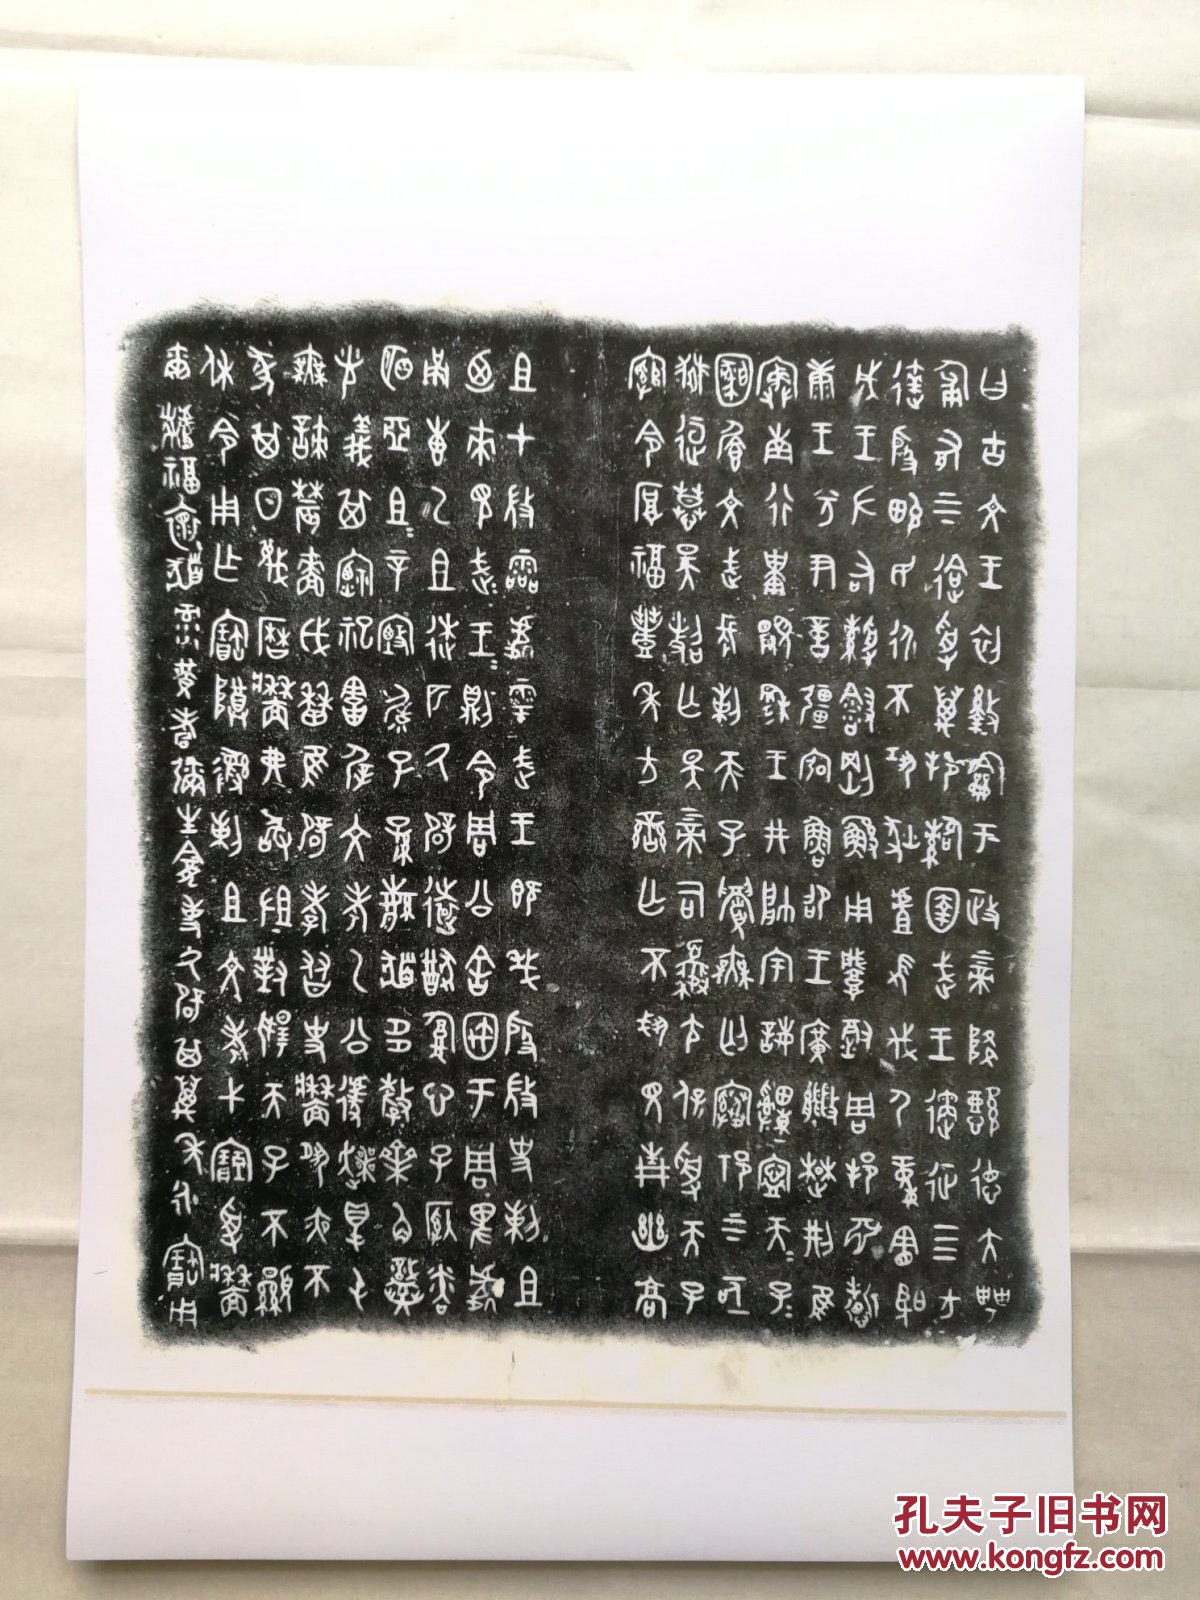 曰古文王初盭龢于政上帝降懿德大甹
匍有上下迨受萬邦䚄圉武王遹征四方
達殷畯民永不巩狄虘髟伐尸童憲聖
成王左右綬會剛鯀用肇徹周邦淵哲
康王兮尹億疆宖魯邵王廣能楚荊隹
寏南行祗顯穆王井帥宇誨申寧天子天子
圝饡文武長剌天子眉無匄寋祁上下亟
獄逗慕昊照亡斁上帝司夒尢保受天子
綰令厚福豐年方蠻亡不踝見青幽高
且才微霝處雩武王既殷微史剌且
廼來見武王武王則令周公舍宇于周卑處
甬惠乙且逨匹氒辟遠猷腹心子納粦
明亞且且辛甄毓子孫繁祓多釐齊角熾
光義其禋祀害屖文考乙公遽爽得屯
無諫農穡戉曆隹辟孝友史牆夙夜不
彖其日蔑曆牆弗敢沮對揚天子不顯
休令用乍寶尊彝剌且文考弋受牆
爾福懷祓彔黃耇彌生龕事氒辟其萬年永寶用
孔夫子旧书网
www.kongfz.com